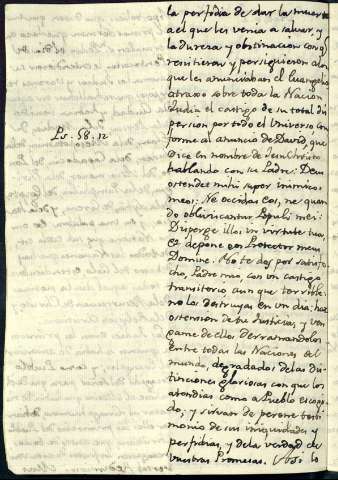 la perfidia de dar la muerte
a el que les venia a salvar, y
la dureza y obstinacion con q
resistieron y persiguieron a los
que le anunciaban el Evangelio
atraxo sobre toda la Nacion
Judia el castigo de su total dis
persion por todo el Universo con
forme al anuncio de David, que
Ps. 58. 12
dice en nombre de Jesu Christo
hablando con su Padre: Deus
ostendet mihi super inimicos
meos; Ne occidas eos, ne quan
do obliviscantur Populi mei:
Disperge illos in virtute tua,
et depone eos Protector meus
Domine. No te des por satisfe
cho, Padre mio, con un castigo
transitorio aunque terrible:
no los destruyas en un dia; haz
ostension de tu Justicia, y ven
game de ellos derramandolos
Entre todas las Naciones del
mundo, degradados de las dis
tinciones gloriosas con que los
atendias como a Pueblo escogi
do; y sirvan de perene testi
monio de sus iniquidades y
perfidias, y de la verdad de
vuestras Promesas. Asi lo